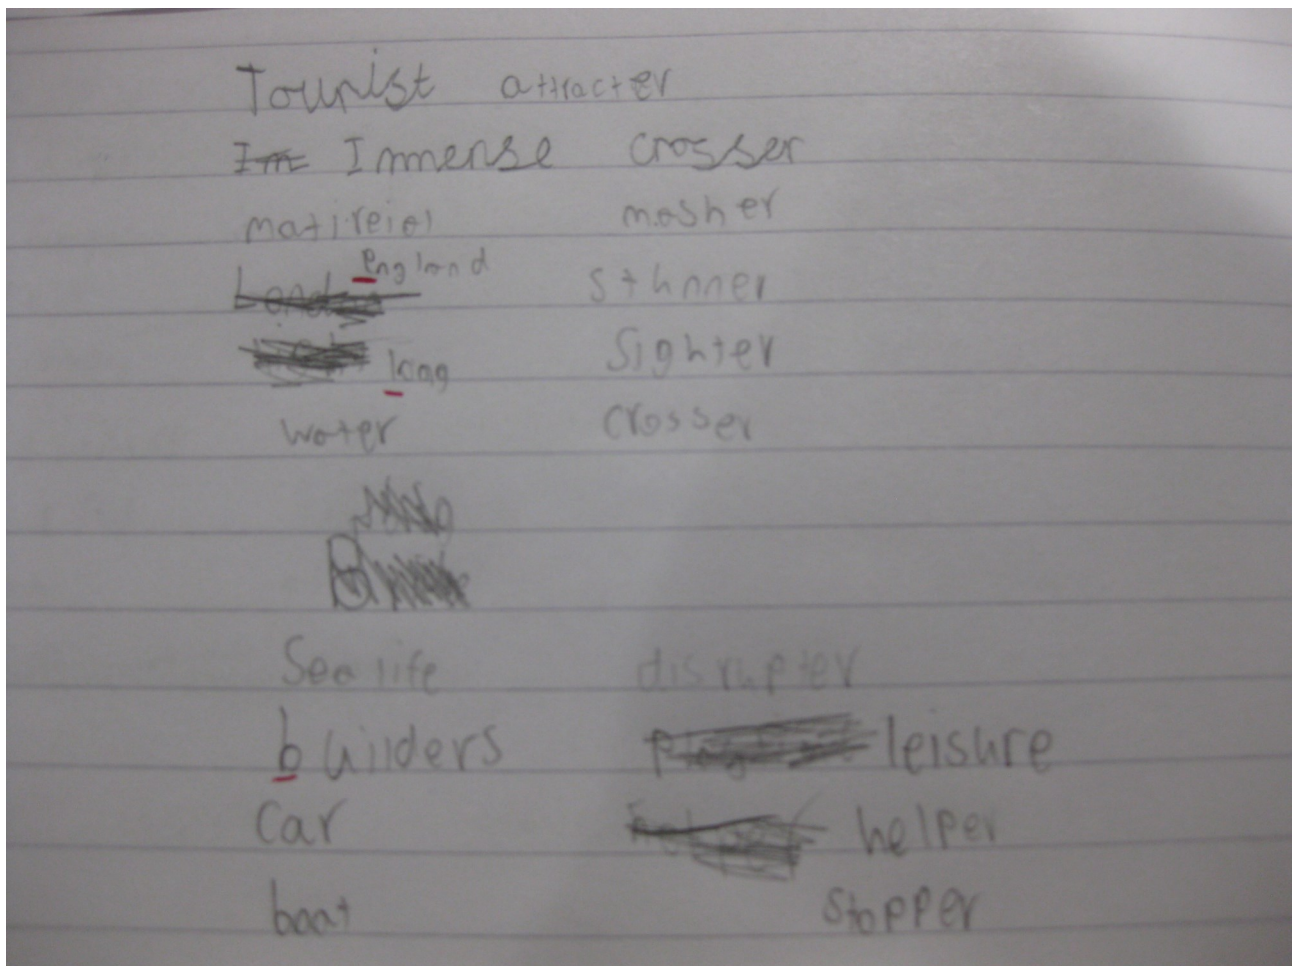 Tourist attracter
Im Immense crosser
matireiel masher
England sthnner
long Sighter
water crosser
Sea life disrupter
builders leisure
Car helper
boat stopper